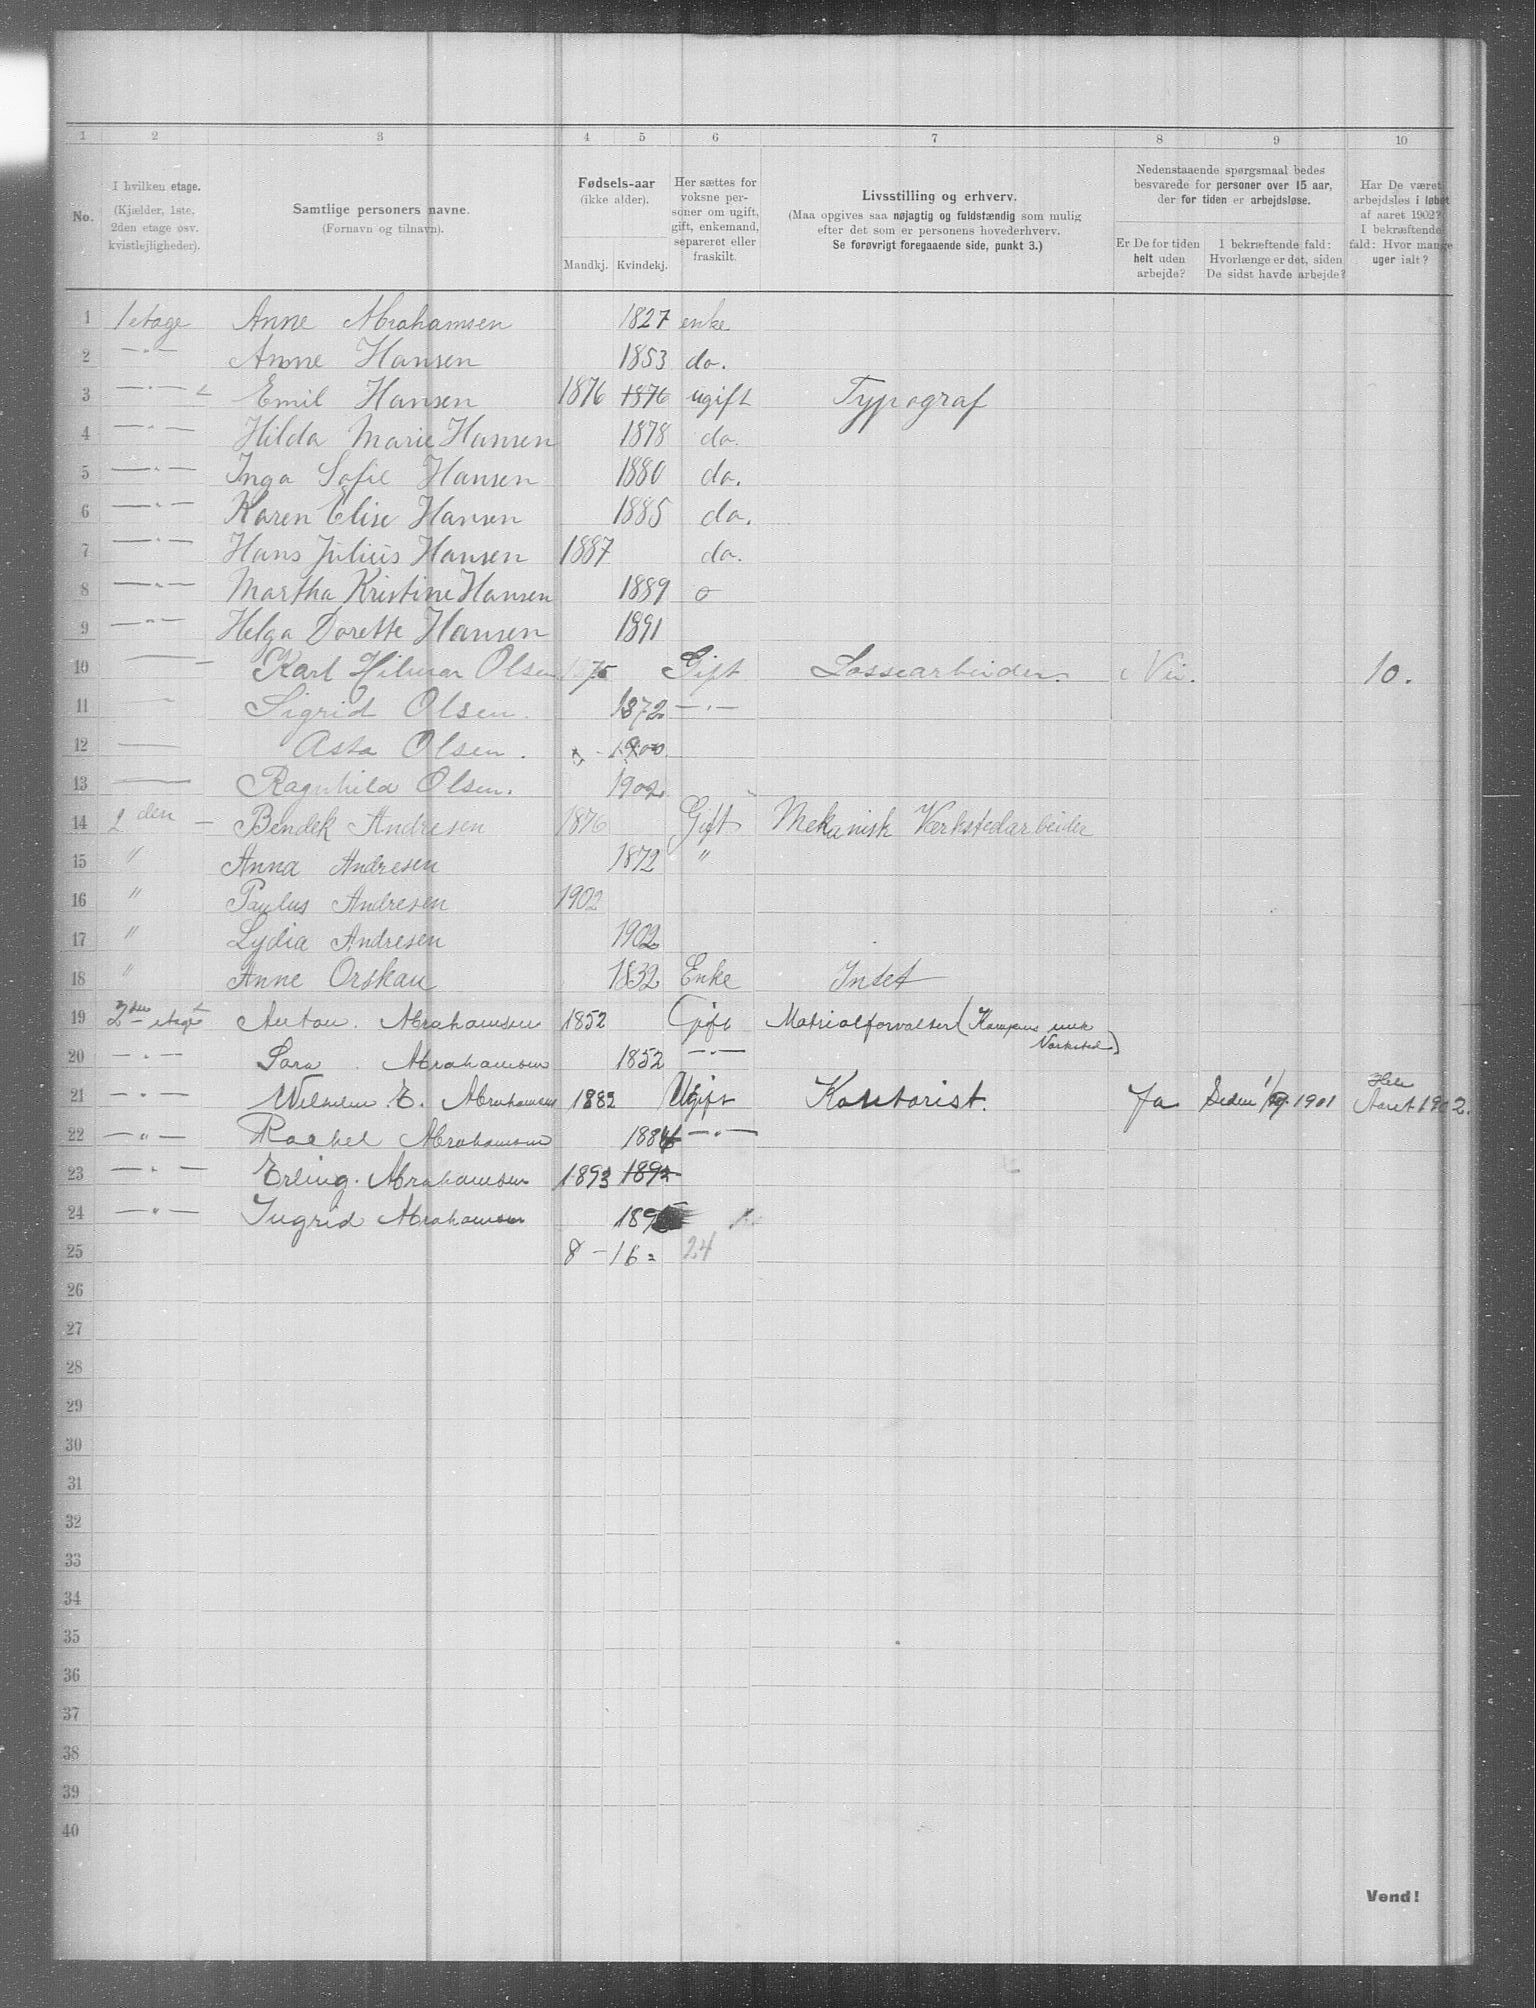 1 2 3 4 5 6 7 8 9 10
No.
I hvilken etage.
(Kjælder, 1ste,
2den etage osv.
kvistlejligheder).
Samtlige personers navne.
(Fornavn og tilnavn).
Fødsels-aar
(ikke alder).
Mandkj. Kvindekj.
Her sættes for
voksne per-
soner om ugift,
gift, enkemand,
separeret eller
fraskilt.
Livsstilling og erhverv.
(Maa opgives saa nøjagtig og fuldstændig som mulig
efter det som er personens hovederhverv.
Se forøvrigt foregaaende side, punkt 3.)
Nedenstaaende spørgsmaal bedes
besvarede for personer over 15 aar,
der for tiden er arbejdsløse.
Er De for tiden
helt uden
arbejde?
I bekræftende fald:
Hvorlænge er det, siden
De sidst havde arbejde?
Har De været
arbejdsløs i løbet
af aaret 1902?
I bekræftende
fald: Hvor mange
uger ialt?
1 1 etage Anne Abrahamsen 1827 enke
2 —"— Anne Hansen 1853 do.
3 —"— Emil Hansen 1876 1876 ugift Typograf
4 —"— Hilda Marie Hansen 1878 do.
5 —"— Inga Sofie Hansen 1880 do.
6 —"— Karen Elise Hansen 1885 do.
7 —"— Hans Julius Hansen 1887 do.
8 —"— Martha Kristine Hansen 1889 o
9 —"— Helga Dorette Hansen 1891
10 — Karl Hilmar Olsen 1875 Gift Lossearbeider. Nei. 10.
11 — Sigrid Olsen. 1872 —"—
12 — Asta Olsen. 1900
13 — Ragnhild Olsen. 1902
14 2 den — Bendek Andresen 1876 Gift Mekanisk Verkstedarbeider
15 " Anna Andresen 1872 "
16 " Paulus Andresen 1902
17 " Lydia Andresen 1902
18 " Anne Orskau 1832 Enke Intet
19 2den etage Anton. Abrahamsen 1852 Gift Matrialforvalter (Kampens mek
Værksted)
20 —"— Sara. Abrahamsen 1852 —"—
21 —"— Wilhelm. E. Abrahamsen 1882 Ugift Kontorist. Ja Siden 1901 Hele
Aaret 1902.
22 —"— Rachel Abrahamsen 1884 —"—
23 —"— Erling. Abrahamsen 1893 1892
24 —"— Ingrid Abrahamsen
25 8 – 16 = 24
26
27
28
29
30
31
32
33
34
35
36
37
38
39
40
Vend!